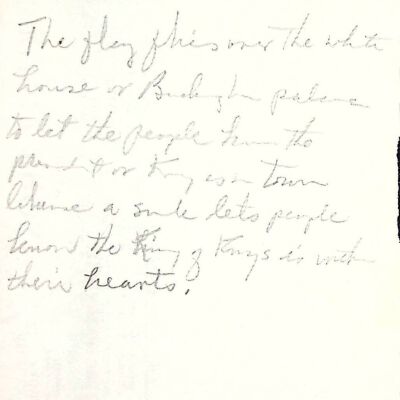 The flag flies over the white
house or Buckingham palace
to let the people know the
president or King is in town
a smile lets people
know the King of Kings is within
their hearts.